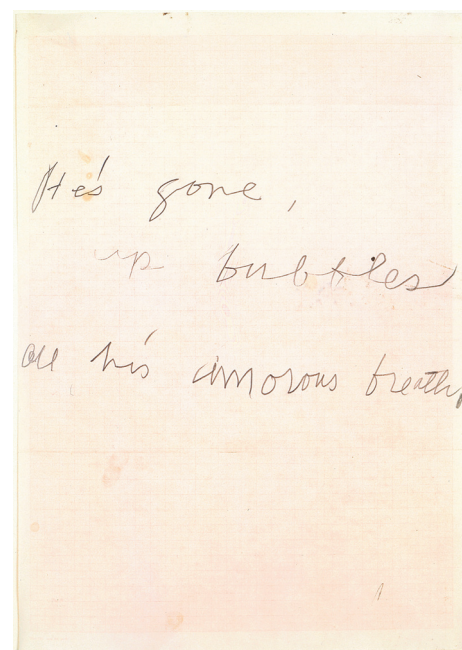 He's gone,
up bubbles
all his amorous breath,